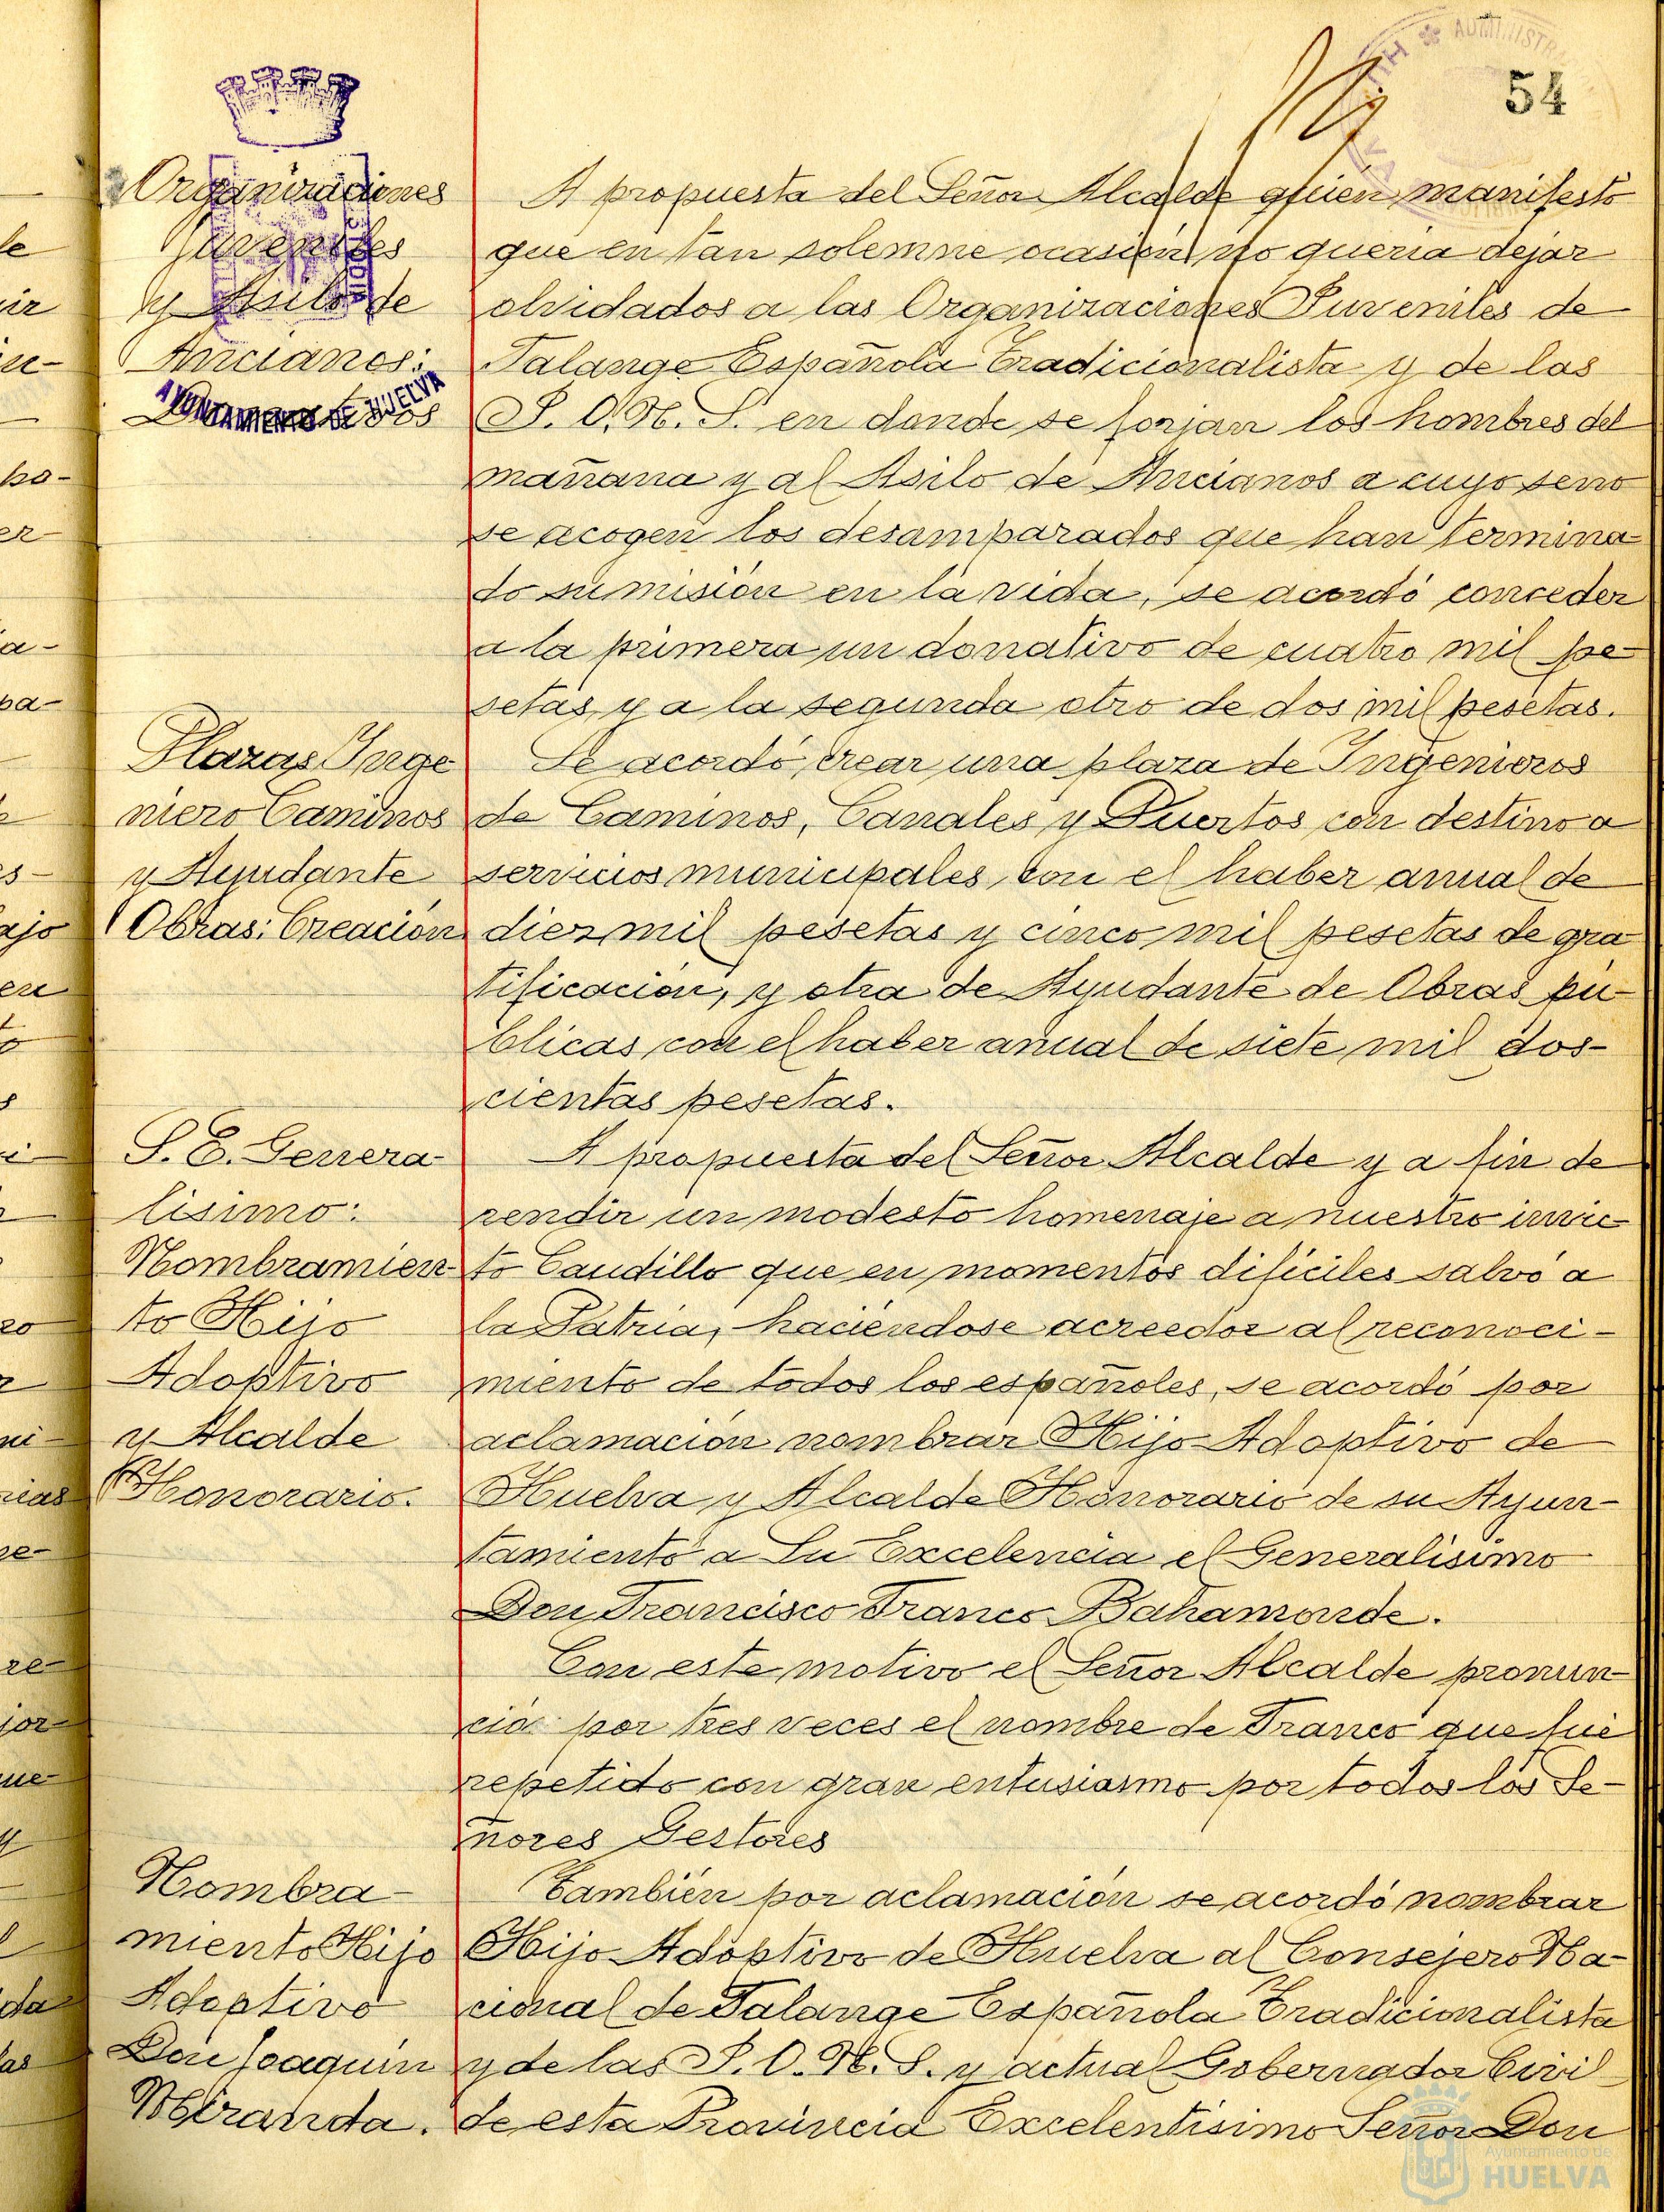 54
Organizaciones
Juveniles
y Asilo de
Ancianos:
AYUNTAMIENTO DE HUELVA
A propuesta del Señor Alcalde quien manifestó
que en tan solemne ocasión no quería dejar
olvidados a las Organizaciones Juveniles de
Falange Española Tradicionalista y de las
J. O. N. S. en donde se forjan los hombres del
mañana y al Asilo de Ancianos a cuyo seno
se acogen los desamparados que han termina-
do su misión en la vida, se acordó conceder
a la primera un donativo de cuatro mil pe-
setas y a la segunda otro de dos mil pesetas.
Plazas Inge
niero Caminos
y Ayudante
Obras: Creación
Se acordó crear una plaza de Ingenieros
de Caminos, Canales y Puertos con destino a
servicios municipales con el haber anual de
diez mil pesetas y cinco mil pesetas de gra
tificación, y otra de Ayudante de Obras pú-
blicas con el haber anual de siete mil dos-
cientas pesetas.
S. E. Genera-
lísimo:
Nombramien-
to Hijo
Adoptivo
y Alcalde
Honorario.
A propuesta del Señor Alcalde y a fin de
rendir un modesto homenaje a nuestro invic-
to Caudillo que en momentos difíciles salvó a
la Patria, haciéndose acreedor al reconoci-
miento de todos los españoles, se acordó por
aclamación nombrar Hijo Adoptivo de
Huelva y Alcalde Honorario de su Ayun-
tamiento a Su Excelencia el Generalísimo
Don Francisco Franco Bahamonde.
Con este motivo el Señor Alcalde pronun-
ció por tres veces el nombre de Franco que fué
repetido con gran entusiasmo por todos los Se-
ñores Gestores
Nombra-
miento Hijo
Adoptivo
Don Joaquín
Miranda.
También por aclamación se acordó nombrar
Hijo Adoptivo de Huelva al Consejero Na-
cional de Falange Española Tradicionalista
y de las J. O. N. S. y actual Gobernador Civil
de esta Provincia Excelentísimo Señor Don
Ayuntamiento de
HUELVA